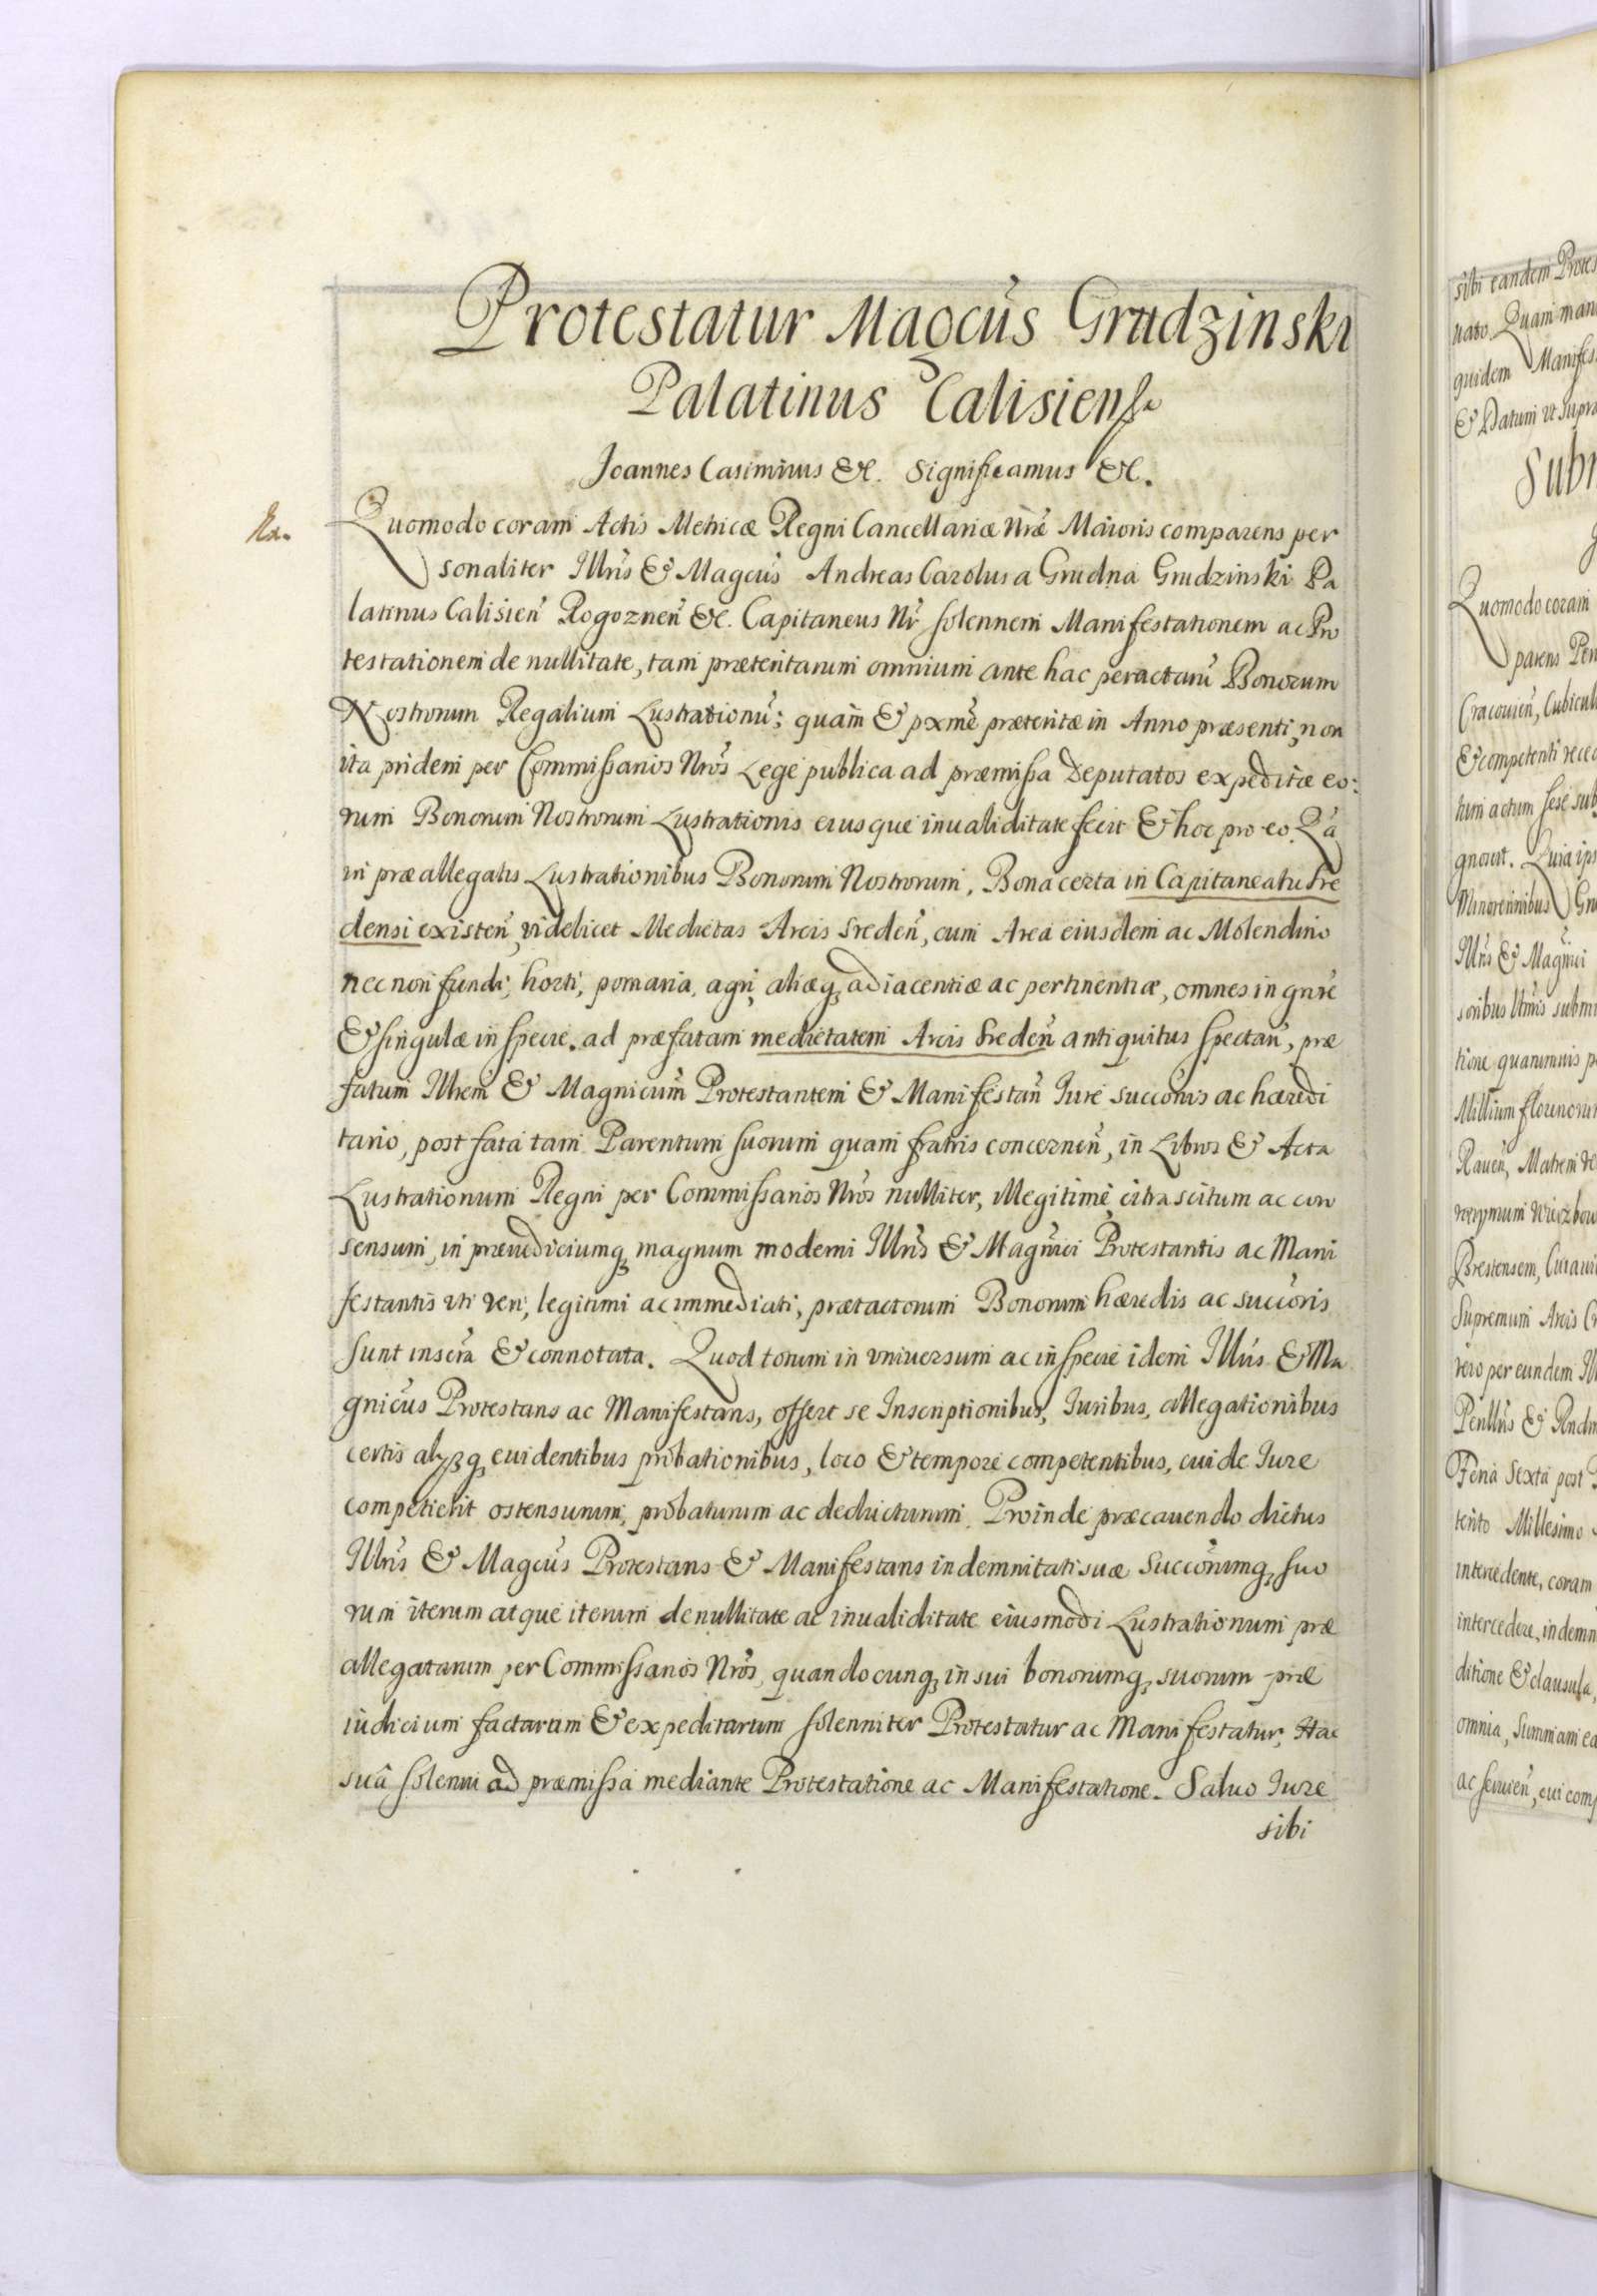 Protestatur Magcûs Grudzinski
Palatinus Calisiens.
Joannes Casimirus &c. Significamus &c.
Quomodo coram Actis Metricæ Regni Cancellariæ Nræ Maioris comparens per
sonaliter Illris & Magcus Andreas Carolus a Grudna Grudzinski Pa
latinus Calisien̄ Rogoznen̄ &c. Capitaneus Nr̄ solennem Manifestationem ac Pro
testationem de nullitate, tam præteritarum omnium ante hac peractarū Bonorum
Nostrorum Regalium Lustrationū; quam & pxmē præteritæ in Anno præsenti, non
ita pridem per Commissarios Nrōs Lege publica ad præmissa Deputatos expeditæ eo:
rum Bonorum Nostrorum Lustrationis eiusque inualiditate fecit & hoc pro eo. Qā
in præallegatis Lustrationibus Bonorum Nostrorum, Bona certa in Capitaneatu Sre
densi existen̄, videlicet Medietas Arcis Sreden̄, cum Area eiusdem ac Molendino
nec non fundi, horti, pomaria, agri, aliæq, adiacentiæ ac pertinentiæ, omnes in gn̄re
& singulæ in specie. ad præfatam medietatem Arcis Sreden̄ antiquitus spectan̄, præ
fatum Illrem & Magnicum̄ Protestantem & Manifestan̄ Iure succōnis ac hæredi
tario, post fata tam Parentum suorum quam fratris concernen̄, in Libros & Acta
Lustrationum Regni per Commissarios Nrōs nulliter, illegitime, citra scitum ac con
sensum, in præiudiciumq, magnum moderni Illris & Magnici Protestantis ac Mani
festantis uti veri, legitimi ac immediati, prætactorum Bonorum hæredis ac succōris
sunt inserta & connotata. Quod totum in vniuersum ac in specie idem Illris & Ma
gnicus Protestans ac Manifestans, offert se Inscriptionibus, Iuribus, allegationibus
certis alijsq, euidentibus probationibus, loco & tempore competentibus, cui de Iure
competierit ostensurum, probaturum ac deducturum. Proinde præcauendo dictus
Illris & Magcus Protestans & Manifestans indemnitati suæ Succōrumq, suo
rum iterum atque iterum de nullitate ac inualiditate eiusmodi Lustrationum præ
allegatarum per Commissarios Nrōs, quandocunq, in sui bonorumq, suorum præ
iudicium factarum & expeditarum solenniter Protestatur ac Manifestatur, Hac
suâ solenni ad præmissa mediante Protestatione ac Manifestatione. Saluo Iure
sibi
sibi eandem Protes
quidem Manifes
& Datum vt supra
Subm
Quomodo coram
parens
Cracouien̄, Cubicul
& competenti
tum actum sese sub
gnouit. Quia ips
Minorennibus
Illris & Magnici
soribus Vtrius submi
tione quanimuis
Millium florenorum
Rauen̄, Matrem
Brestensem,
Supremum Arcis
vero per eundem
Feria Sexta post
tento Millesimo
intercedente, coram
intercedere, indemn
ditione & clausula,
omnia, Summam ea
ac seruien̄, cui comp